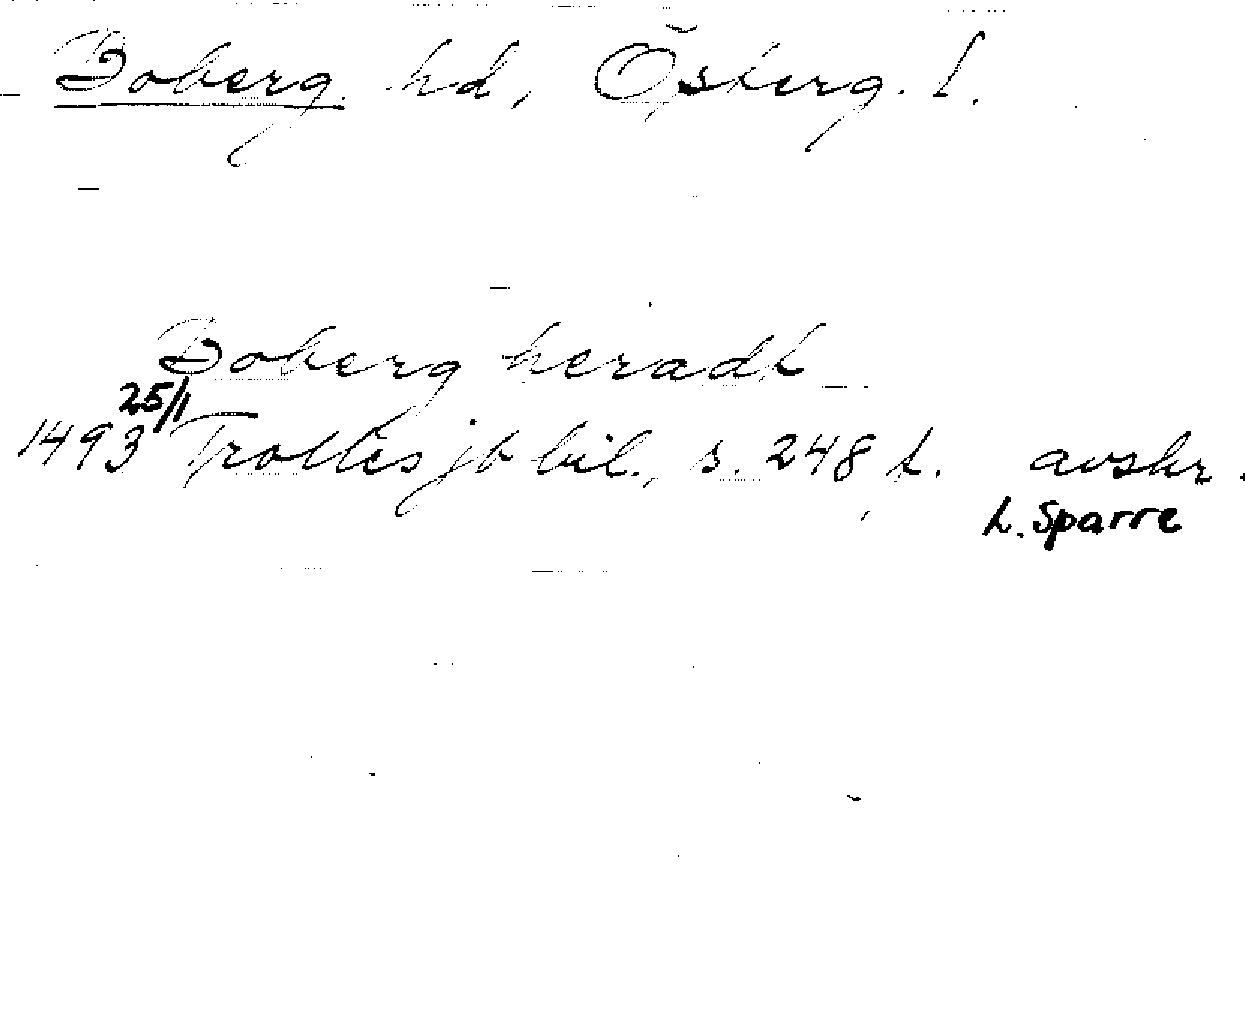 Boberg hd, Österg. l.
Boberg heradh
25/1
1493 Trolles jb bil., s. 248 h. avskr.
L. Sparre